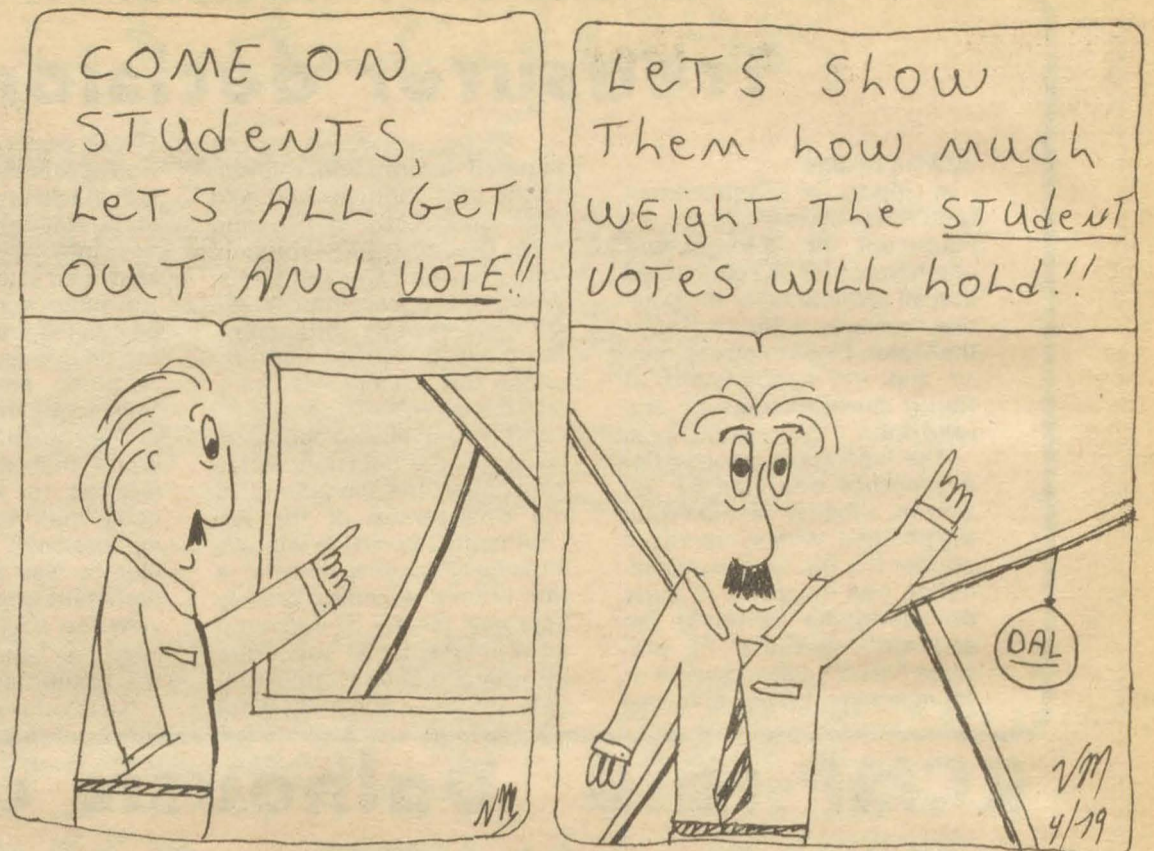 COME ON
STUdeNTS,
LeT S ALL GeT
OUT ANd VOTE!!
VM
LeTS ShOW
Them how much
WEighT The STUdeNT
VOTes WILL hoLd!!
DAL
VM
4/79